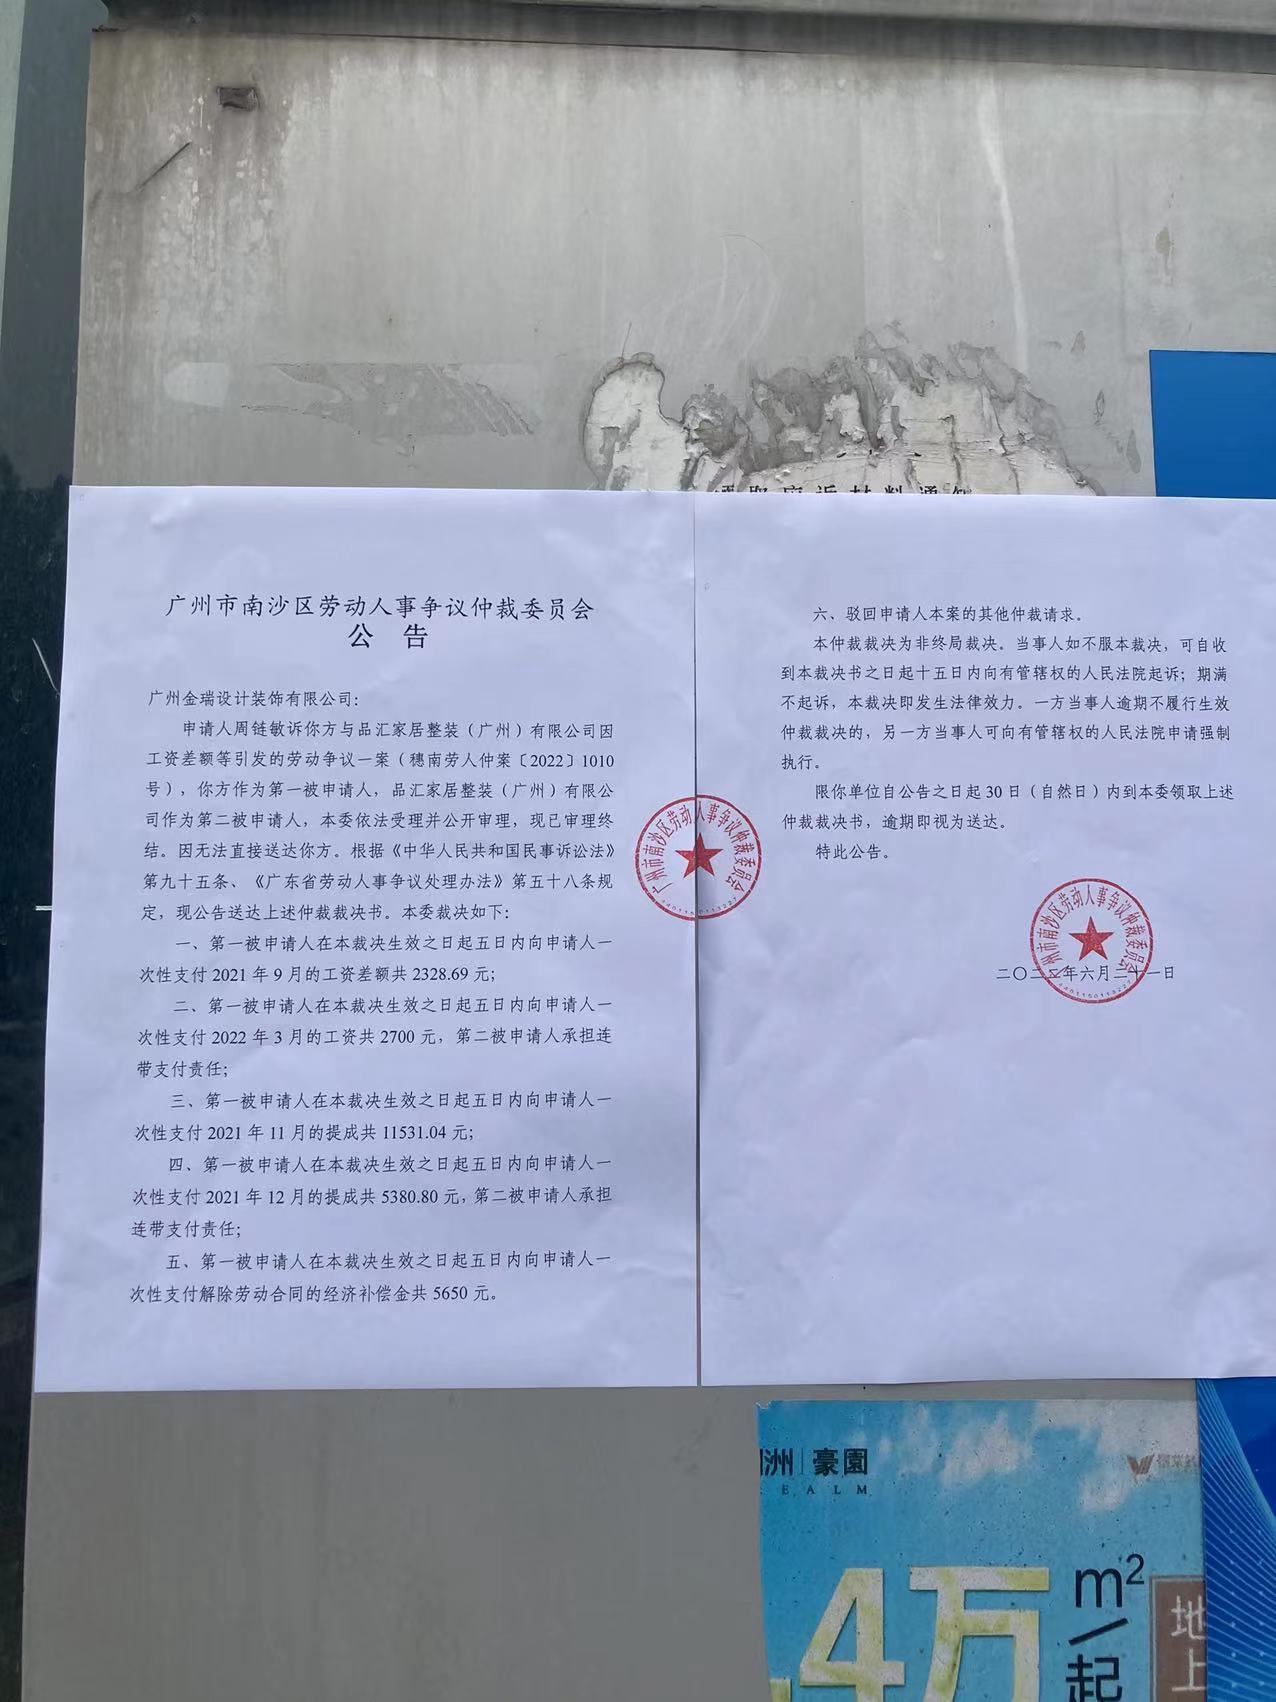 广州市南沙区劳动人事争议仲裁委员会
公 告
广州金瑞设计装饰有限公司：
申请人周链敏诉你方与品汇家居整装（广州）有限公司因
工资差额等引发的劳动争议一案（穗南劳人仲案〔2022〕1010
号），你方作为第一被申请人，品汇家居整装（广州）有限公
司作为第二被申请人，本委依法受理并公开审理，现已审理终
结。因无法直接送达你方。根据《中华人民共和国民事诉讼法》
第九十五条、《广东省劳动人事争议处理办法》第五十八条规
定，现公告送达上述仲裁裁决书。本委裁决如下：
一、第一被申请人在本裁决生效之日起五日内向申请人一
次性支付 2021 年 9 月的工资差额共 2328.69 元；
二、第一被申请人在本裁决生效之日起五日内向申请人一
次性支付 2022 年 3 月的工资共 2700 元，第二被申请人承担连
带支付责任；
三、第一被申请人在本裁决生效之日起五日内向申请人一
次性支付 2021 年 11 月的提成共 11531.04 元；
四、第一被申请人在本裁决生效之日起五日内向申请人一
次性支付 2021 年 12 月的提成共 5380.80 元，第二被申请人承担
连带支付责任；
五、第一被申请人在本裁决生效之日起五日内向申请人一
次性支付解除劳动合同的经济补偿金共 5650 元。
六、驳回申请人本案的其他仲裁请求。
本仲裁裁决为非终局裁决。当事人如不服本裁决，可自收
到本裁决书之日起十五日内向有管辖权的人民法院起诉；期满
不起诉，本裁决即发生法律效力。一方当事人逾期不履行生效
仲裁裁决的，另一方当事人可向有管辖权的人民法院申请强制
执行。
限你单位自公告之日起 30 日（自然日）内到本委领取上述
仲裁裁决书，逾期即视为送达。
特此公告。
二〇二二年六月二十一日
广州市南沙区劳动人事争议仲裁委员会
4401150113227
广州市南沙区劳动人事争议仲裁委员会
4401150113227
洲 豪園
EALM
4万
m²/起
地上